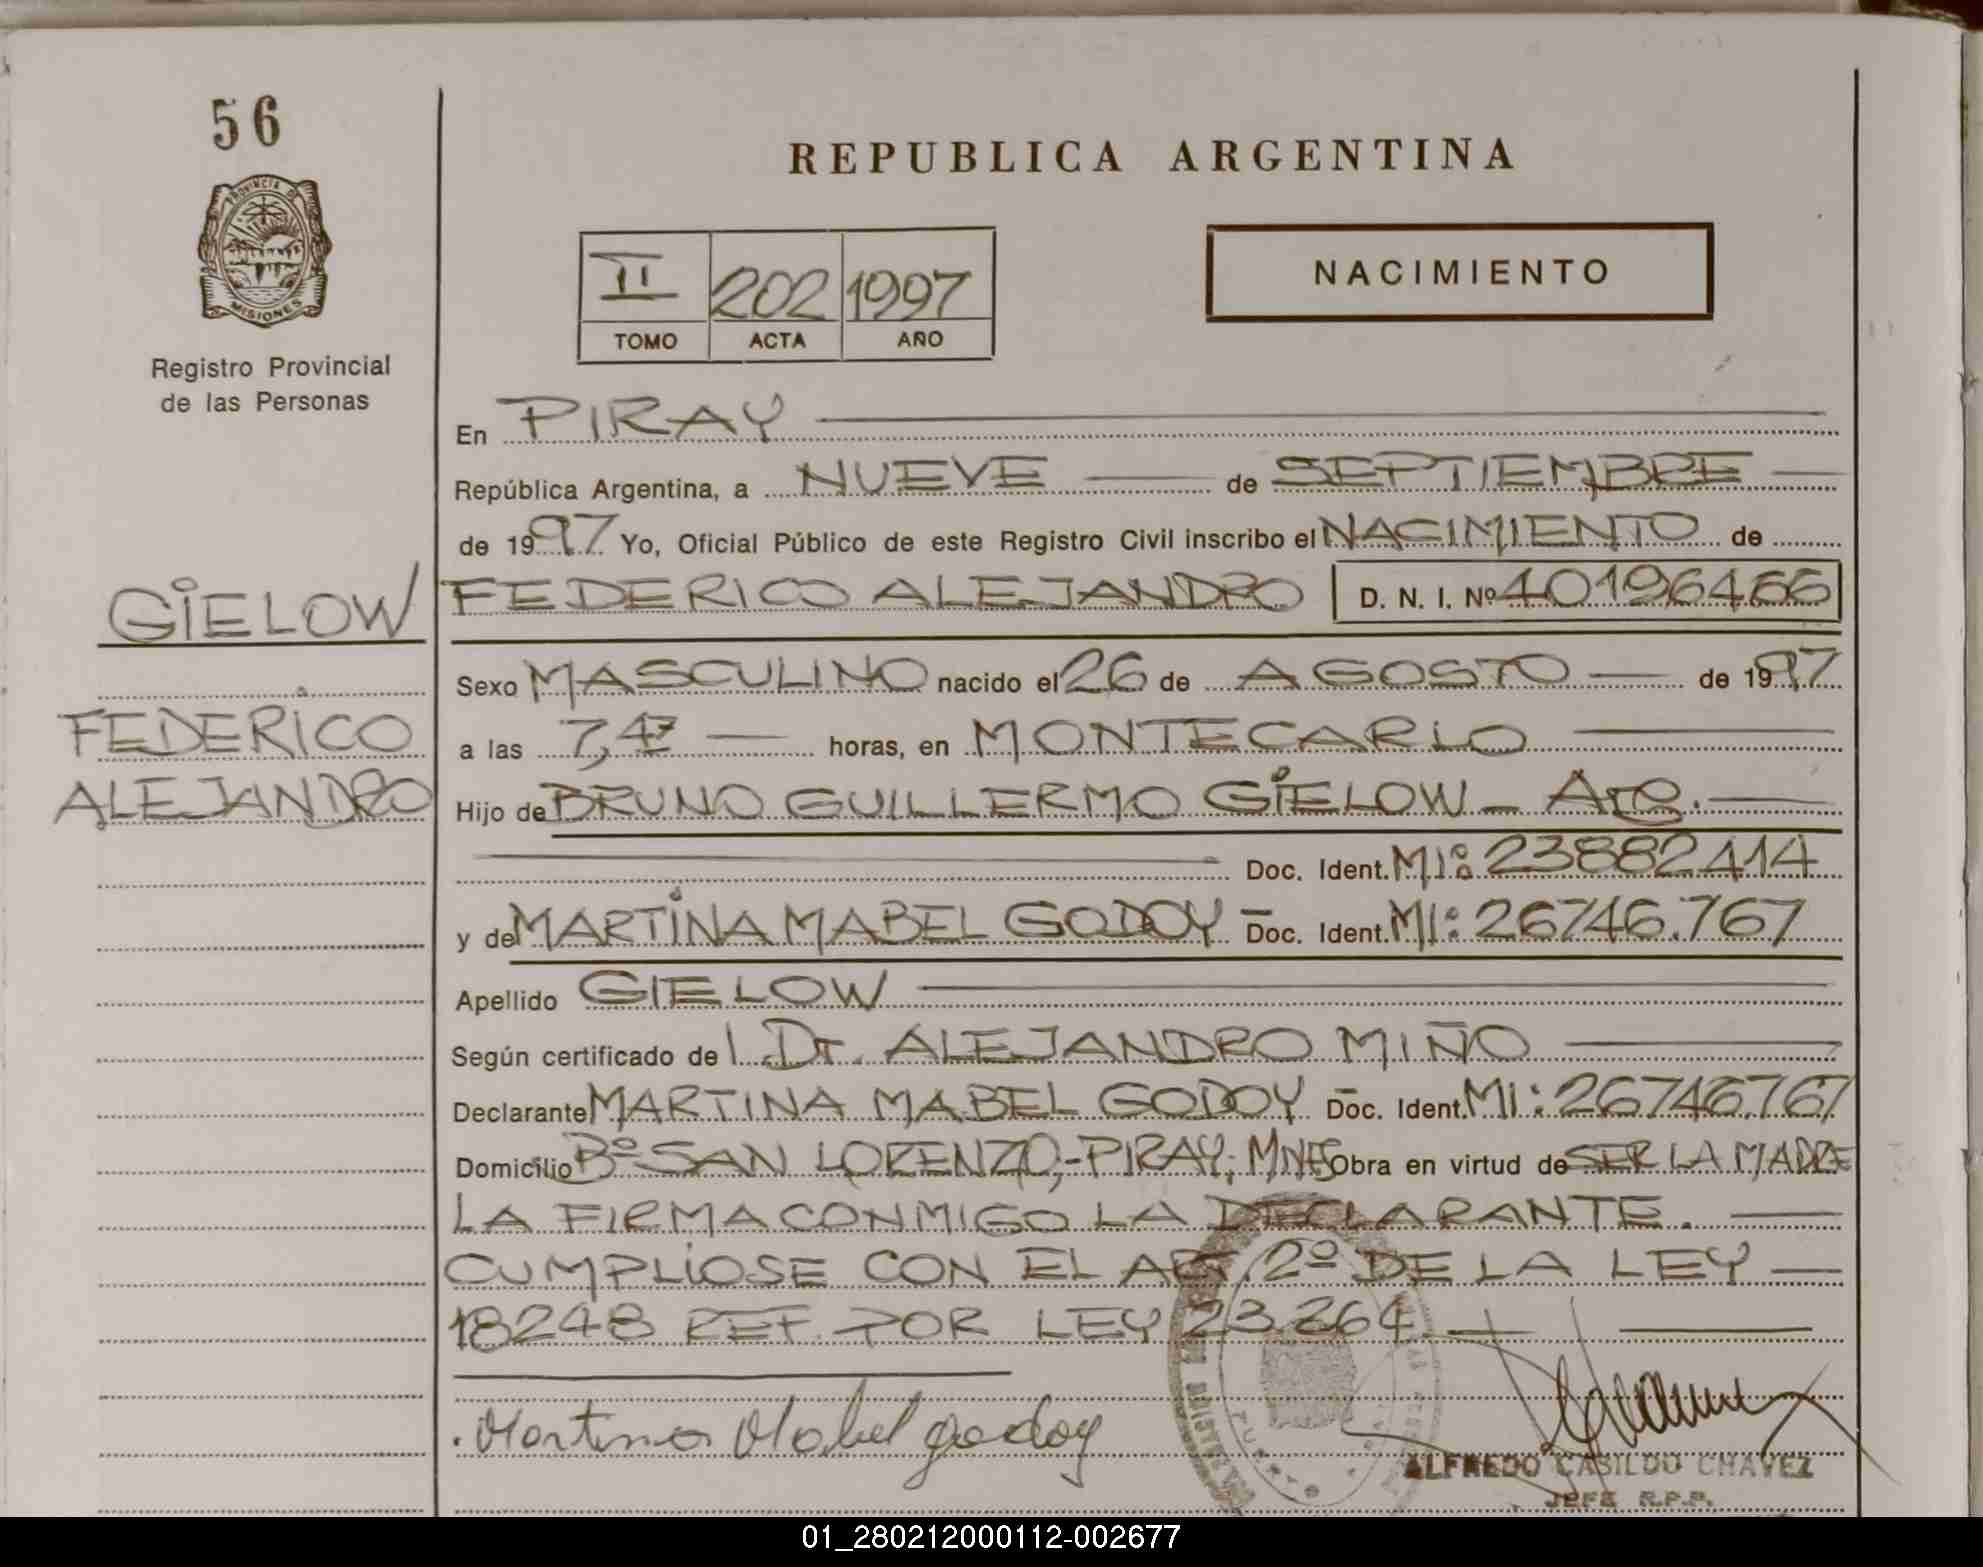 56
REPUBLICA ARGENTINA
PROVINCIA DE
MISIONES
Registro Provincial
de las Personas
II 202 1997
TOMO ACTA AÑO
NACIMIENTO
En PIRAY
República Argentina, a NUEVE de SEPTIEMBRE
de 1997 Yo, Oficial Público de este Registro Civil inscribo el NACIMIENTO de
GIELOW
FEDERICO ALEJANDRO D. N. I. Nº 40196466
Sexo MASCULINO nacido el 26 de AGOSTO de 1997
FEDERICO
a las 7,47 horas, en MONTECARLO
ALEJANDRO
Hijo de BRUNO GUILLERMO GIELOW - Arg.
Doc. Ident. MI: 23882414
y de MARTINA MABEL GODOY - Doc. Ident. MI: 26746.767
Apellido GIELOW
Según certificado de l Dr. ALEJANDRO MIÑO
Declarante MARTINA MABEL GODOY - Doc. Ident. MI: 26746767
Domicilio Bº SAN LORENZO,-PIRAY, MNES Obra en virtud de SER LA MADRE
LA FIRMA CONMIGO LA DECLARANTE.
CUMPLIOSE CON EL ART. 2º DE LA LEY
18248 REF. POR LEY 23.264.
Martina Mabel godoy
ALFREDO CASILDO CHAVEZ
JEFE R.P.P.
01_280212000112-002677